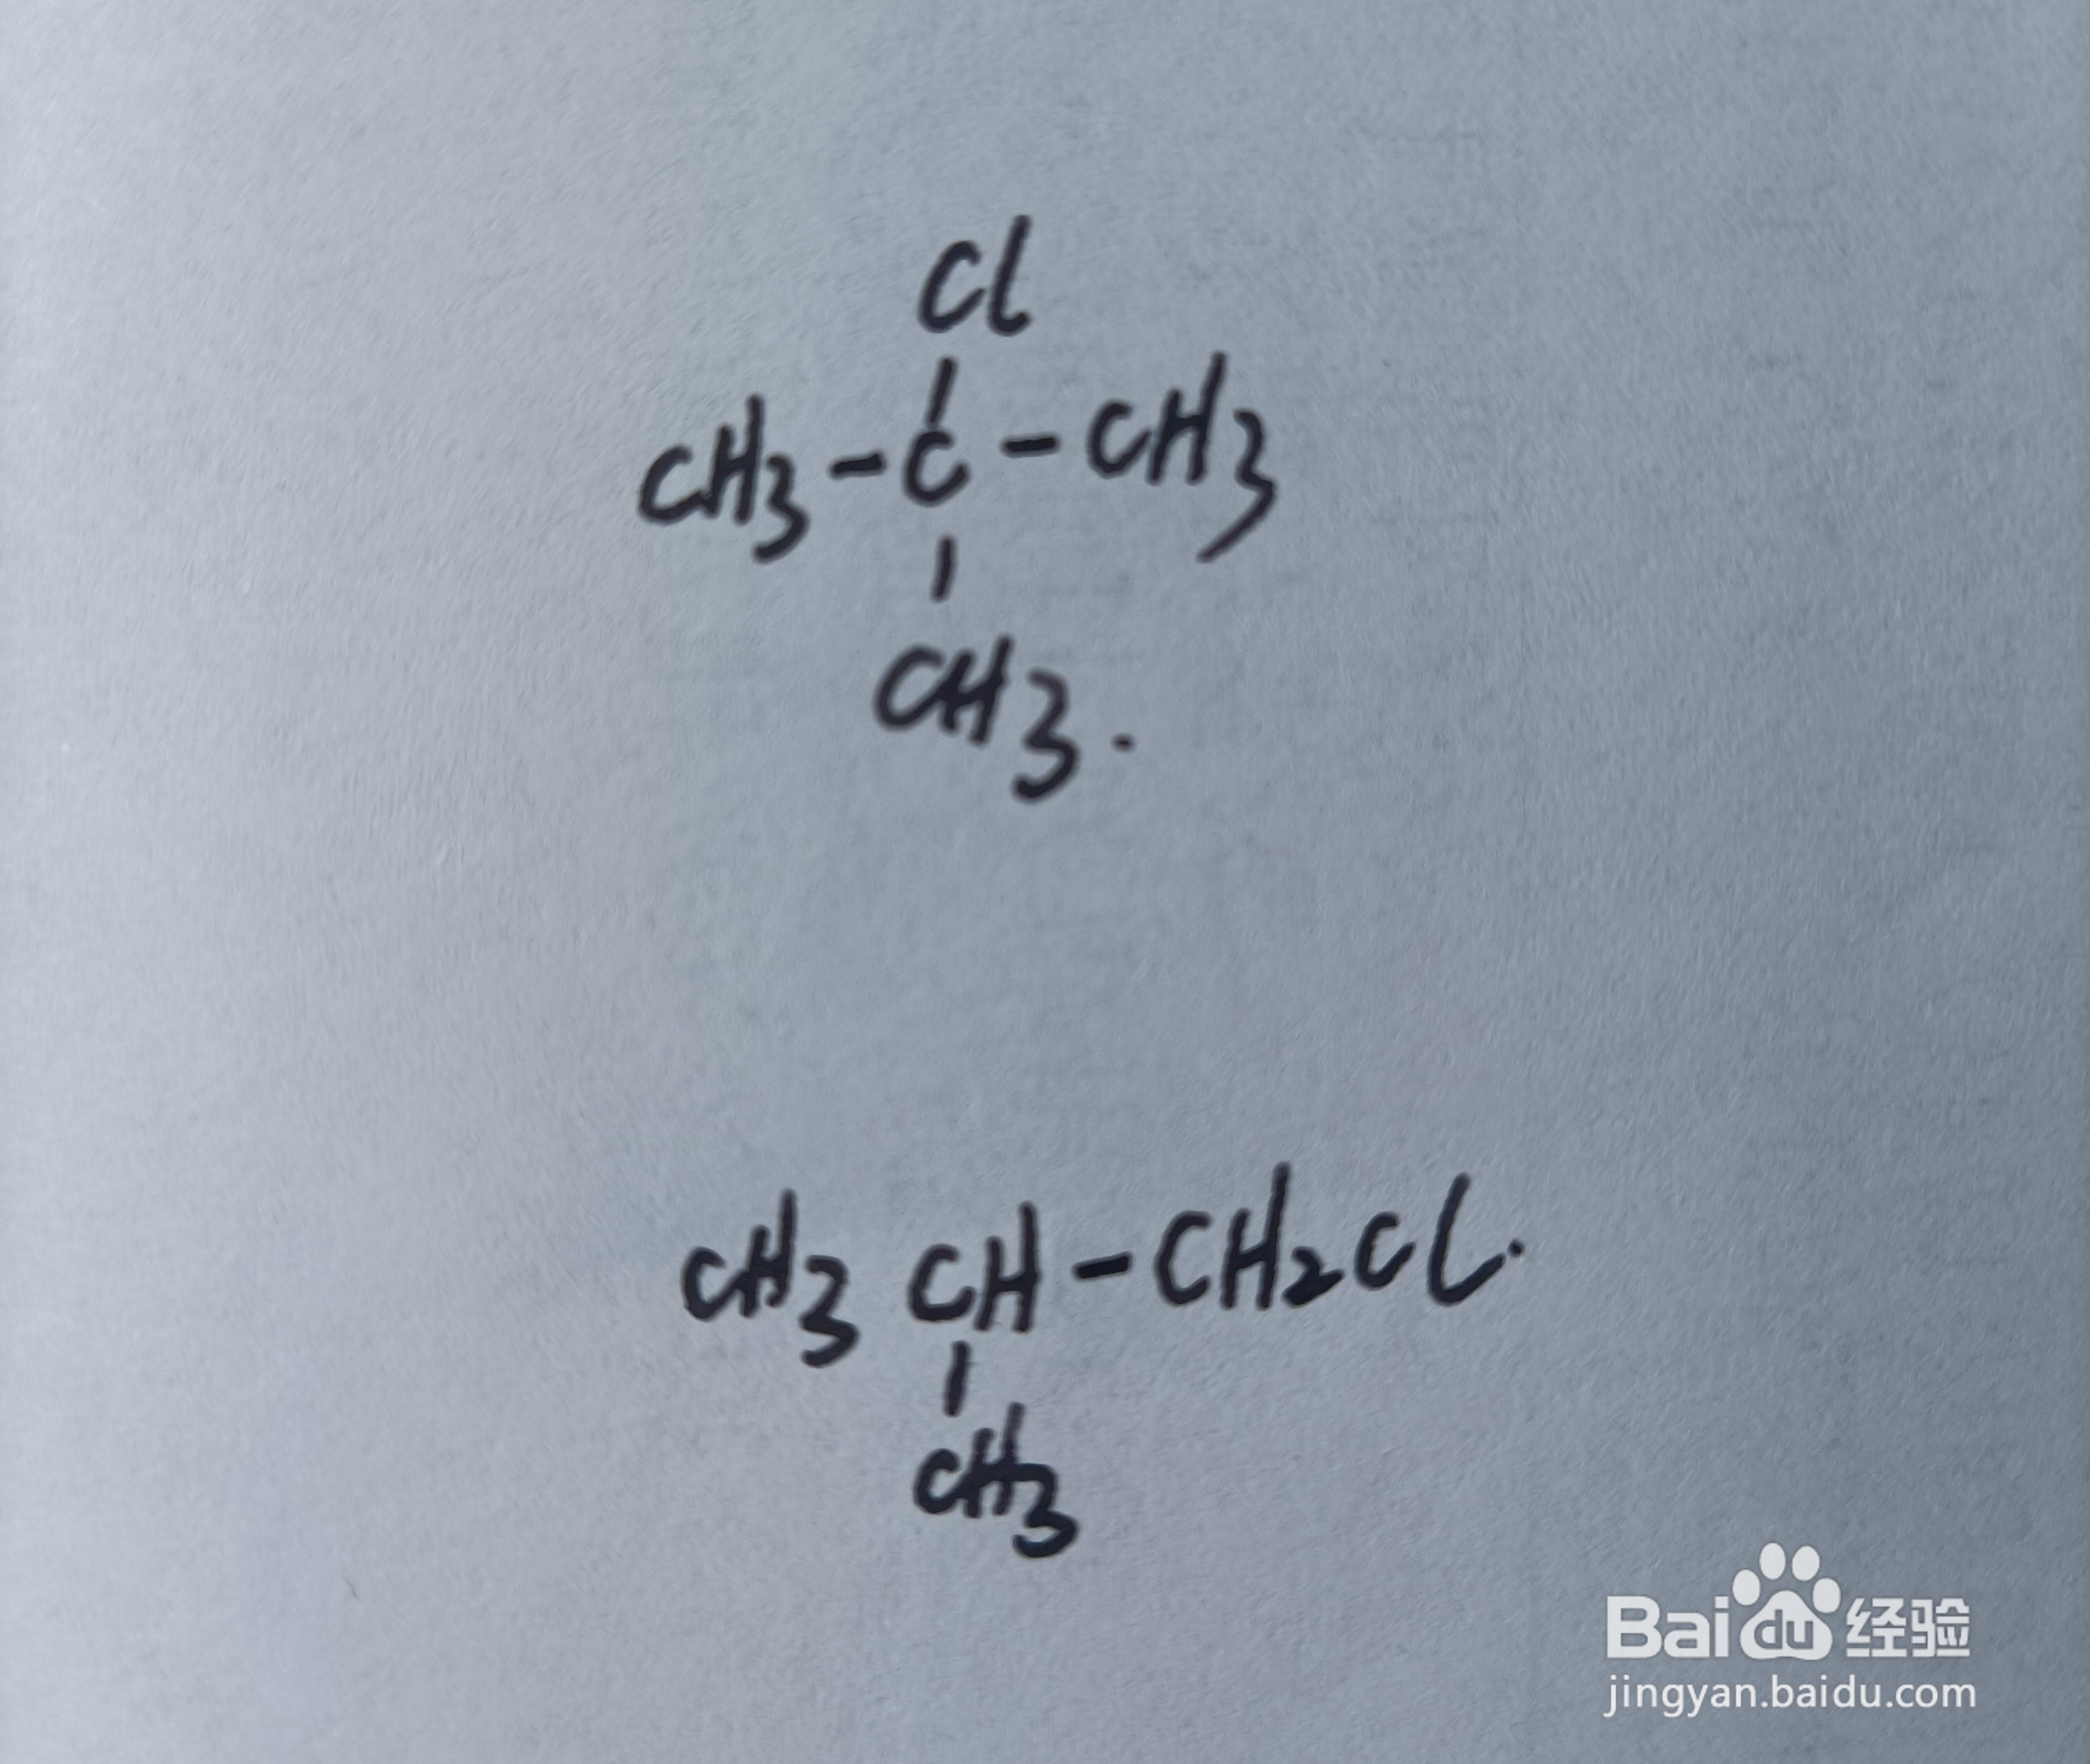 Cl
CH3-C-CH3
CH3.
CH3 CH-CH2Cl.
CH3
Baidu经验
jingyan.baidu.com